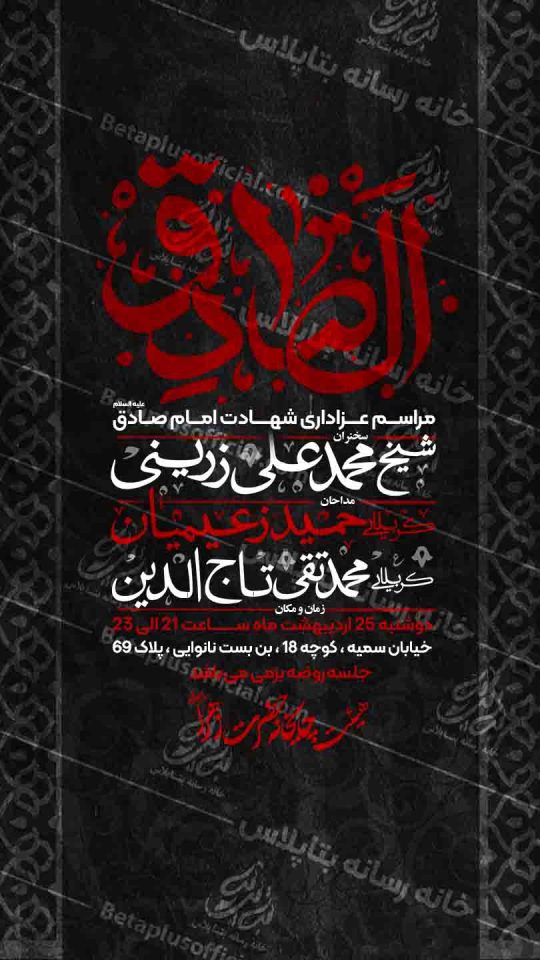 خانه رسانه بتاپلاس
Betaplusofficial.com
الصادق
مراسم عزاداری شهادت امام صادق علیه السلام
سخنران
شیخ محمد علی زرینی
مداحان
کربلایی حمید زعیمیان
کربلایی محمد تقی تاج الدین
زمان و مکان
دوشنبه 25 اردیبهشت ماه ساعت 21 الی 23
خیابان سمیه ، کوچه 18 ، بن بست نانوایی ، پلاک 69
جلسه روضه بزمی می باشد
خانه رسانه بتاپلاس
Betaplusofficial.com